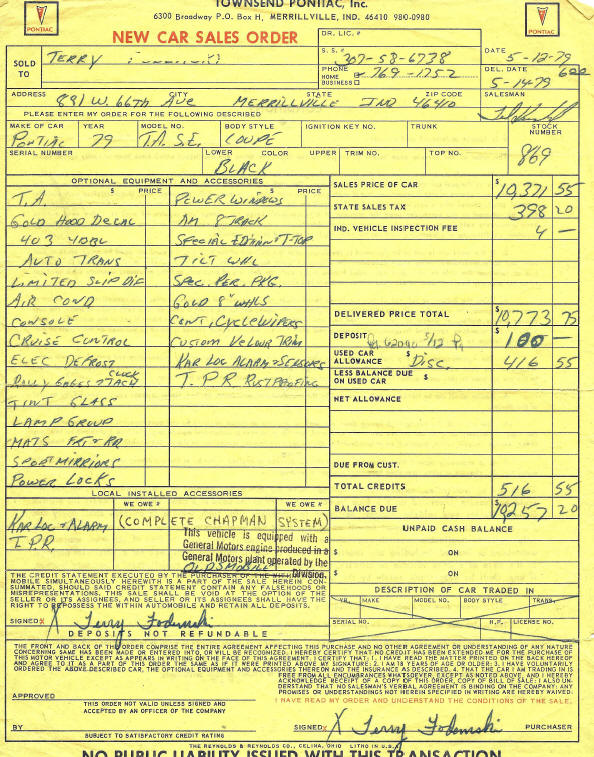 TOWNSEND PONTIAC, Inc.
6300 Broadway P.O. Box H, MERRILLVILLE, IND. 46410 980-0980
PONTIAC
PONTIAC
NEW CAR SALES ORDER
DR. LIC. #
SOLD TO
TERRY
S. S. # 307-58-6738
DATE 5-12-79
PHONE
HOME 769-1752
BUSINESS
DEL. DATE 5-14-79
ADDRESS 891 W. 66TH AVE CITY MERRILLVILLE STATE IND ZIP CODE 46410
SALESMAN
PLEASE ENTER MY ORDER FOR THE FOLLOWING DESCRIBED
MAKE OF CAR YEAR MODEL NO. BODY STYLE IGNITION KEY NO. TRUNK STOCK NUMBER
PONTIAC 79 T.A. S.E. COUPE 869
SERIAL NUMBER LOWER COLOR UPPER TRIM NO. TOP NO.
BLACK
OPTIONAL EQUIPMENT AND ACCESSORIES
$ PRICE $ PRICE
T.A. POWER WINDOWS
GOLD HOOD DECAL AM 8 TRACK
403 4 OBL SPECIAL EDITION & T-TOP
AUTO TRANS TILT WHL
LIMITED SLIP DIF SPEC. PER. PKG.
AIR COND GOLD 8" WHLS
CONSOLE CONT. CYCLE WIPERS
CRUISE CONTROL CUSTOM VELOUR TRIM
ELEC DEFROST KAR LOC ALARM & SENSORS
RALLY GAGES CLOCK & TACH T.P.R. RUSTPROOFING
TINT GLASS
LAMP GROUP
MATS FRT & RR
SPORT MIRRIORS
POWER LOCKS
SALES PRICE OF CAR $ 10,371 55
STATE SALES TAX 398 20
IND. VEHICLE INSPECTION FEE 4 —
DELIVERED PRICE TOTAL $ 10,773 75
DEPOSIT $ 100 —
USED CAR ALLOWANCE $ DISC. 416 55
LESS BALANCE DUE ON USED CAR $
NET ALLOWANCE
DUE FROM CUST.
TOTAL CREDITS 516 55
BALANCE DUE $ 10257 20
LOCAL INSTALLED ACCESSORIES
WE OWE # WE OWE #
KAR LOC & ALARM (COMPLETE CHAPMAN SYSTEM)
T.P.R.
This vehicle is equipped with a
General Motors engine produced in a
General Motors plant operated by the
OLDSMOBILE Division.
UNPAID CASH BALANCE
$ ON
$ ON
THE CREDIT STATEMENT EXECUTED BY THE PURCHASER OF THE WITHIN AUTO-
MOBILE SIMULTANEOUSLY HEREWITH IS A PART OF THE SALE HEREIN CON-
SUMMATED, SHOULD SAID CREDIT STATEMENT CONTAIN FALSEHOODS OR
MISREPRESENTATIONS, THIS SALE SHALL BE VOID AT THE OPTION OF THE
SELLER OR ITS ASSIGNEES, AND SELLER OR ITS ASSIGNEES SHALL HAVE THE
RIGHT TO REPOSSESS THE WITHIN AUTOMOBILE AND RETAIN ALL DEPOSITS.
DESCRIPTION OF CAR TRADED IN
YR. MAKE MODEL NO. BODY STYLE TRANS.
SERIAL NO. H.P. LICENSE NO.
SIGNED X Terry Fodemski
DEPOSITS NOT REFUNDABLE
THE FRONT AND BACK OF THIS ORDER COMPRISE THE ENTIRE AGREEMENT AFFECTING THIS PURCHASE AND NO OTHER AGREEMENT OR UNDERSTANDING OF ANY NATURE
CONCERNING SAME HAS BEEN MADE OR ENTERED INTO, OR WILL BE RECOGNIZED. I HEREBY CERTIFY THAT NO CREDIT HAS BEEN EXTENDED ME FOR THE PURCHASE OF
THIS MOTOR VEHICLE EXCEPT AS IT APPEARS IN WRITING ON THE FACE OF THIS AGREEMENT. I CERTIFY THAT: 1. I HAVE READ THE MATTER PRINTED ON THE BACK HEREOF
AND AGREE TO IT AS A PART OF THIS ORDER THE SAME AS IF IT WERE PRINTED ABOVE MY SIGNATURE. 2. I AM 18 YEARS OF AGE OR OLDER; 3. I HAVE VOLUNTARILY
ORDERED THE ABOVE-DESCRIBED CAR, THE OPTIONAL EQUIPMENT AND ACCESSORIES THEREON AND THE INSURANCE AS DESCRIBED. 4. THAT THE CAR I AM TRADING IN IS
FREE FROM ALL ENCUMBRANCES WHATSOEVER, EXCEPT AS NOTED ABOVE, AND I HEREBY
ACKNOWLEDGE RECEIPT OF A COPY OF THIS ORDER, COPY OF BILL OF SALE: I ALSO UN-
DERSTAND THAT NO SALESMAN'S VERBAL AGREEMENT IS BINDING ON THE COMPANY. ALL
PROMISES OR UNDERSTANDINGS NOT HEREIN SPECIFIED IN WRITING ARE HEREBY WAIVED.
I HAVE READ MY ORDER AND UNDERSTAND THE CONDITIONS OF THE SALE.
APPROVED
THIS ORDER NOT VALID UNLESS SIGNED AND
ACCEPTED BY AN OFFICER OF THE COMPANY
BY
SUBJECT TO SATISFACTORY CREDIT RATING
SIGNED X Terry Fodemski PURCHASER
THE REYNOLDS & REYNOLDS CO., CELINA, OHIO LITHO IN U.S.A.
NO PUBLIC LIABILITY ISSUED WITH THIS TRANSACTION